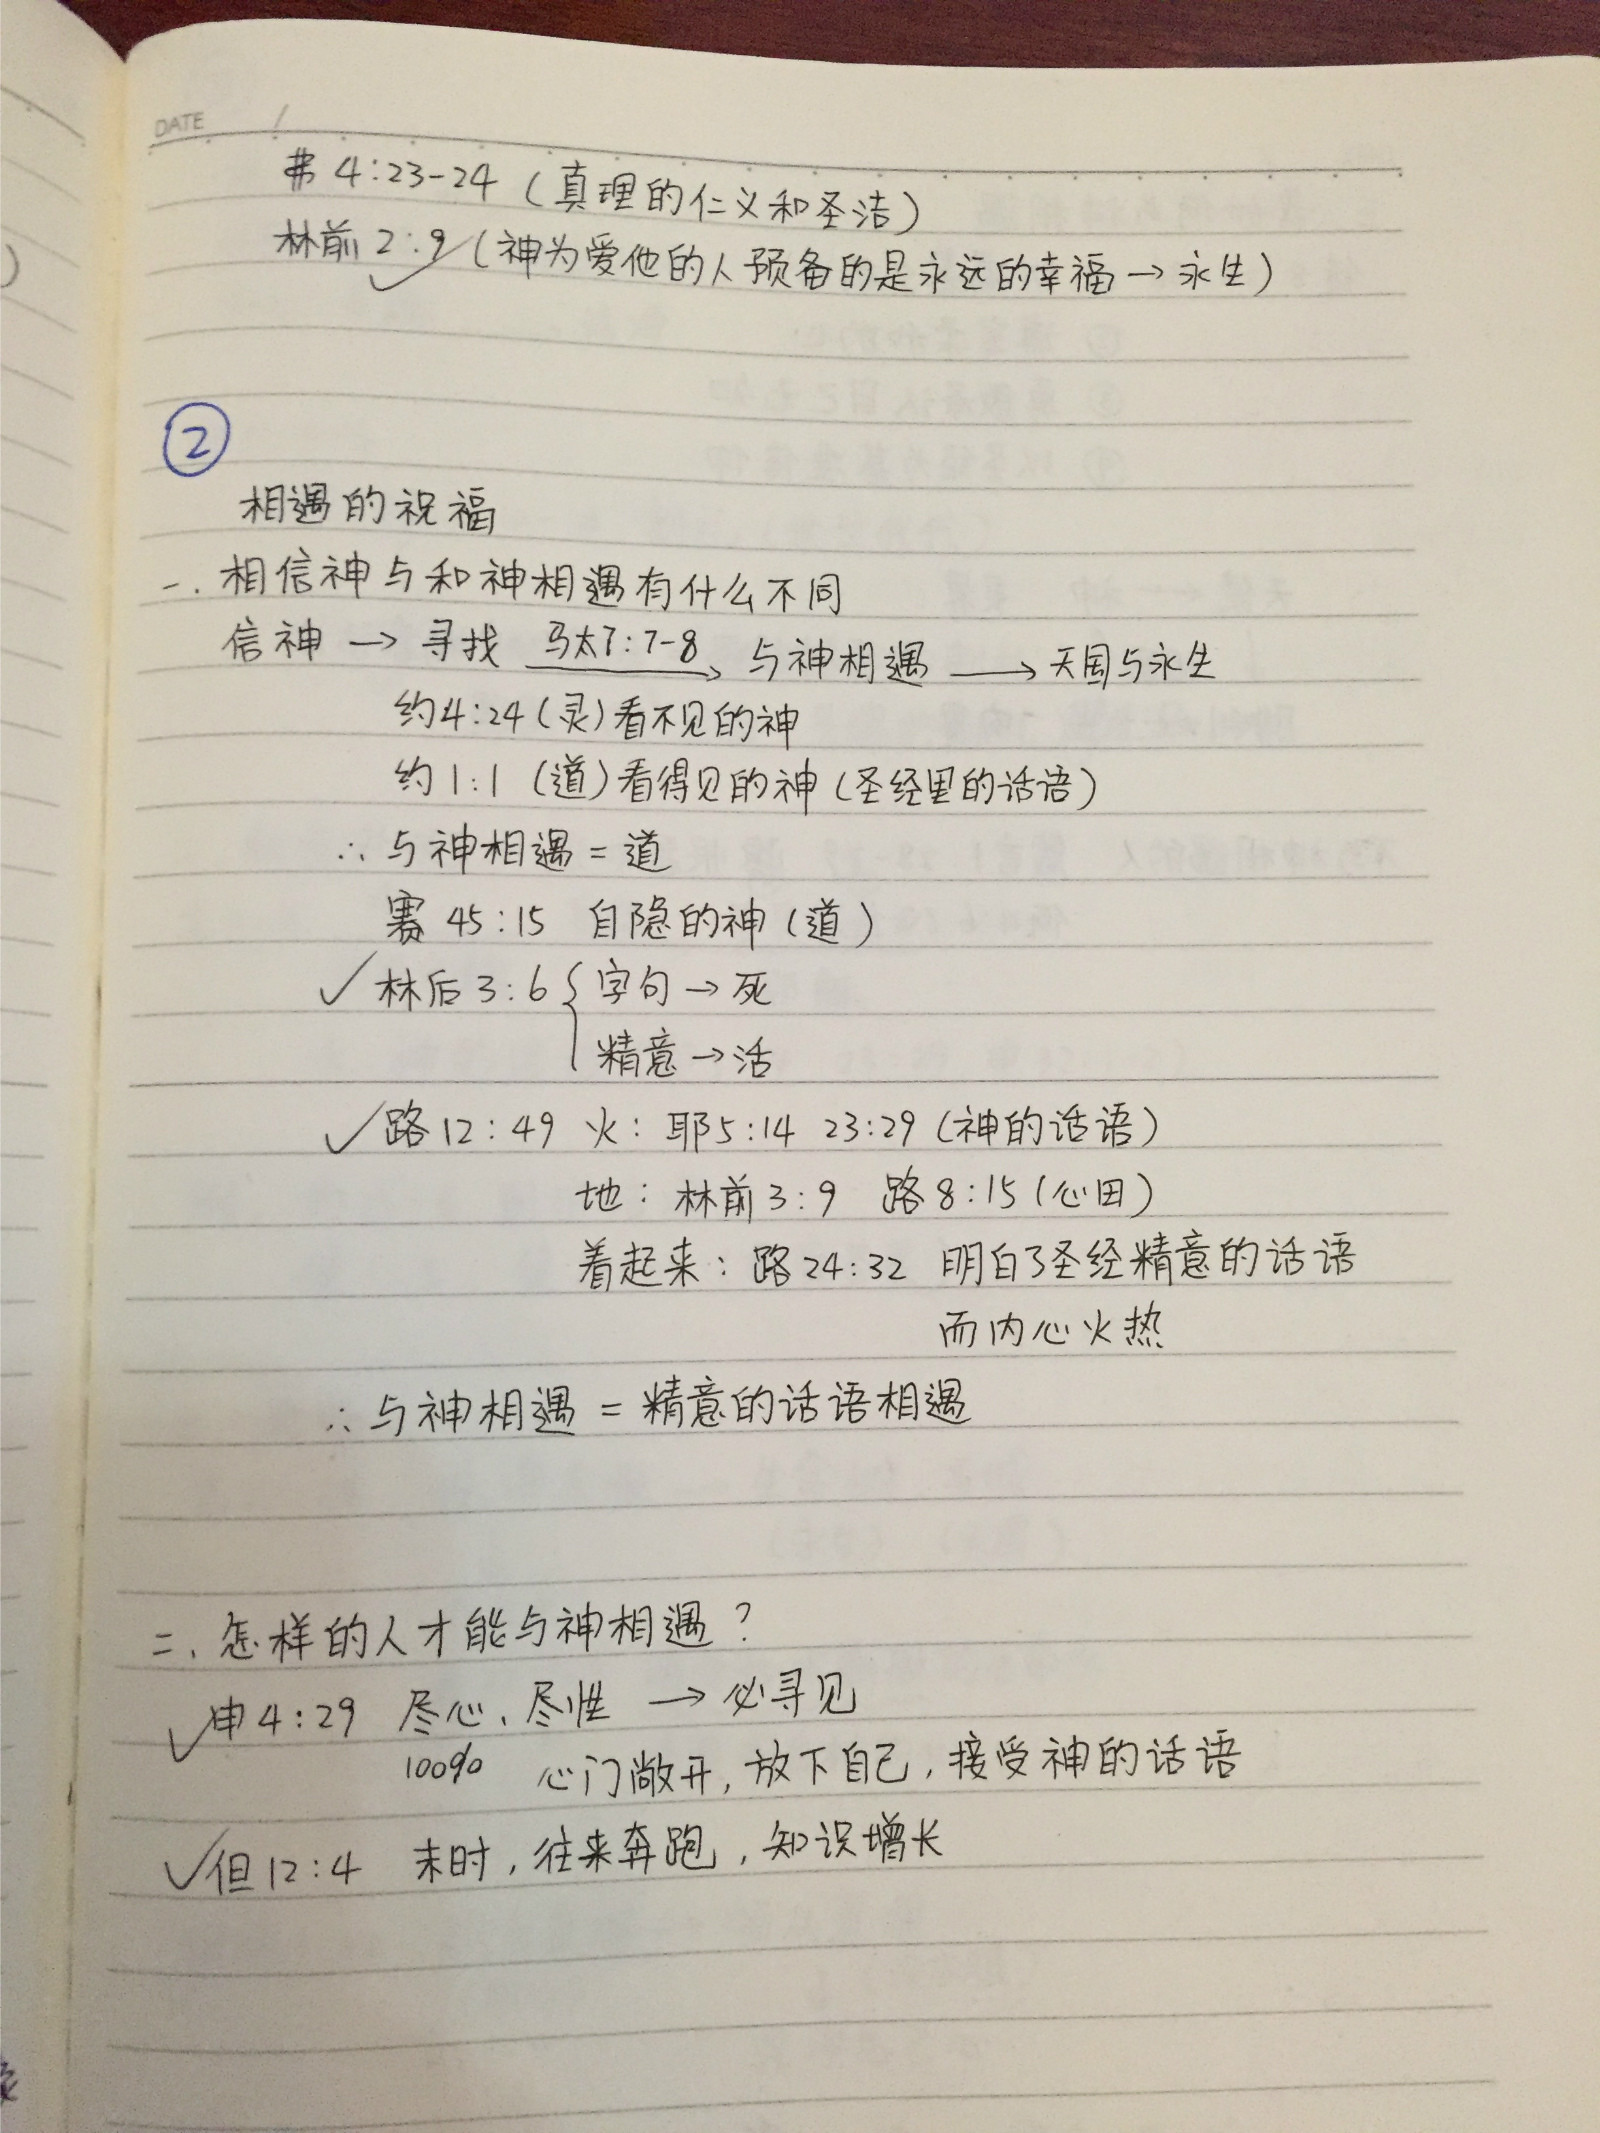 DATE /
弗 4:23-24 (真理的仁义和圣洁)
林前 2:9 (神为爱他的人预备的是永远的幸福 → 永生)
②
相遇的祝福
一. 相信神与和神相遇有什么不同
信神 → 寻找 马太7:7-8 → 与神相遇 → 天国与永生
约4:24 (灵) 看不见的神
约 1:1 (道) 看得见的神 (圣经里的话语)
∴ 与神相遇 = 道
赛 45:15 自隐的神 (道)
✓ 林后 3:6 { 字句 → 死
精意 → 活
✓ 路12:49 火: 耶5:14 23:29 (神的话语)
地: 林前3:9 路8:15 (心田)
着起来: 路24:32 明白了圣经精意的话语
而内心火热
∴ 与神相遇 = 精意的话语相遇
二. 怎样的人才能与神相遇?
✓ 申4:29 尽心、尽性 → 必寻见
100% 心门敞开, 放下自己, 接受神的话语
✓ 但12:4 末时, 往来奔跑, 知识增长